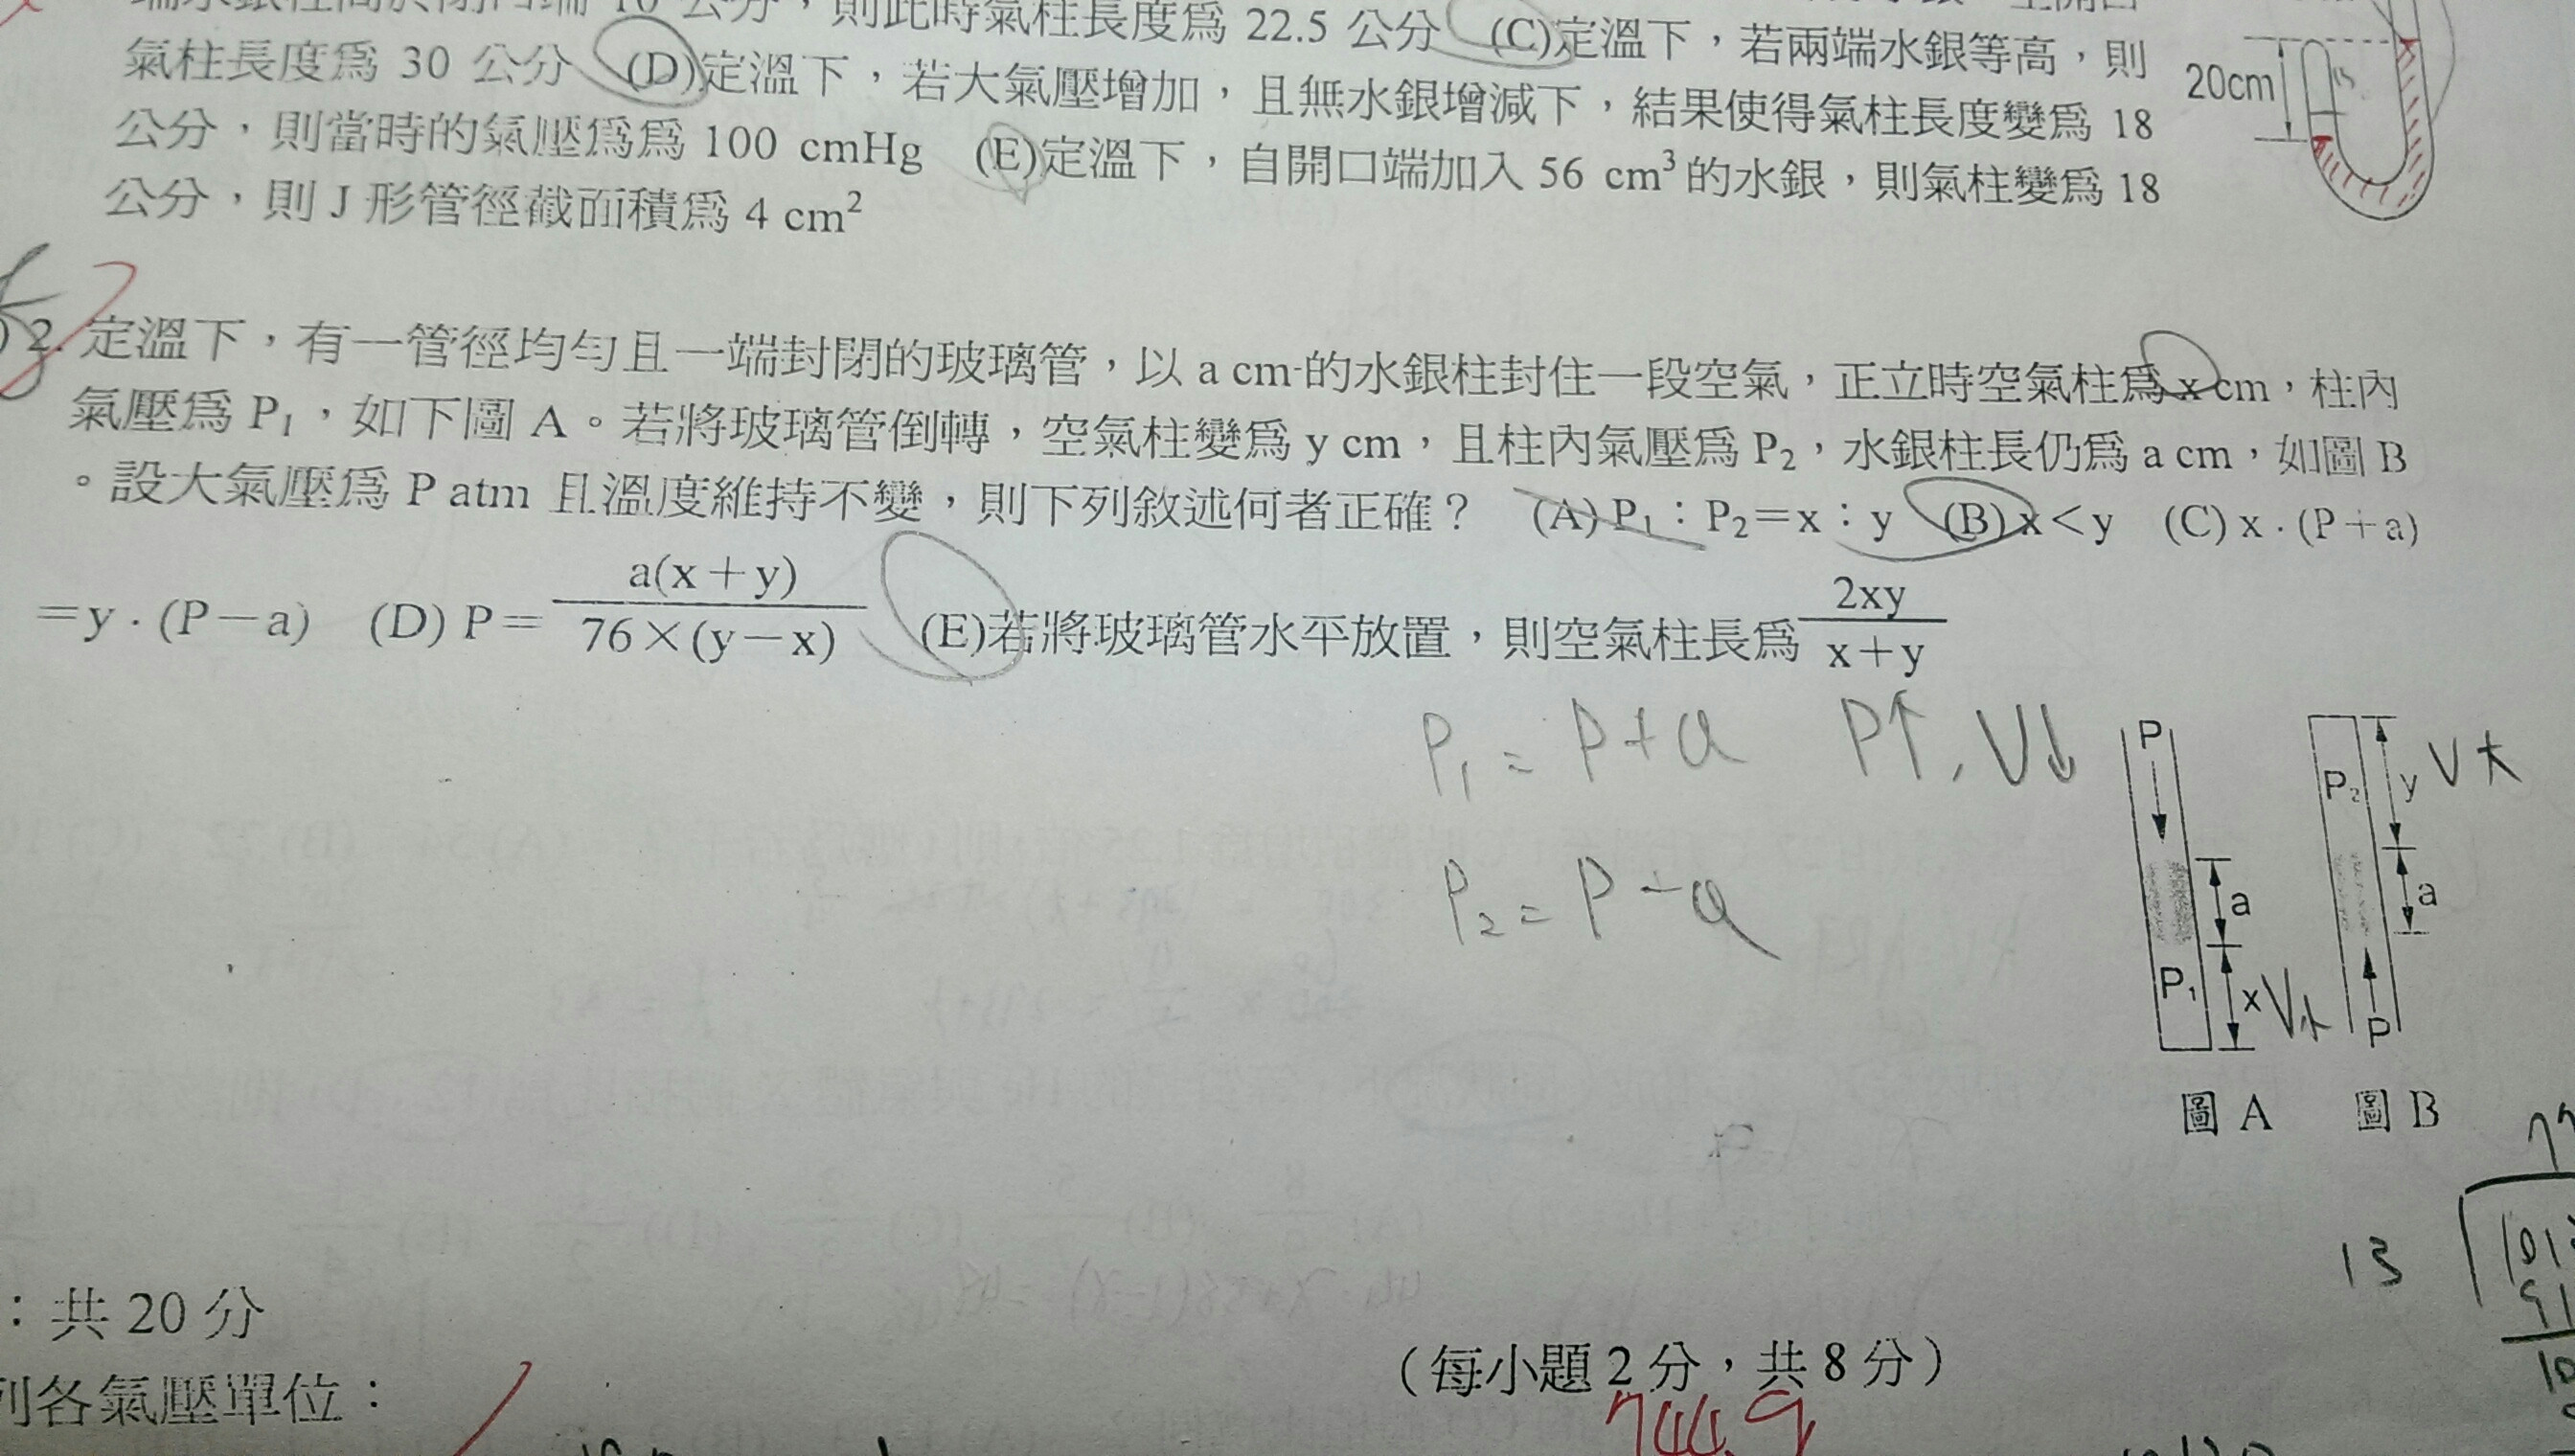 端水銀柱高於閉口端 10 公分，則此時氣柱長度為 22.5 公分 (C)定溫下，若兩端水銀等高，則
氣柱長度為 30 公分 (D)定溫下，若大氣壓增加，且無水銀增減下，結果使得氣柱長度變為 18
公分，則當時的氣壓為為 100 cmHg (E)定溫下，自開口端加入 56 cm³的水銀，則氣柱變為 18
公分，則 J 形管徑截面積為 4 cm²
20cm
15
2. 定溫下，有一管徑均勻且一端封閉的玻璃管，以 a cm 的水銀柱封住一段空氣，正立時空氣柱為 x cm，柱內
氣壓為 P₁，如下圖 A。若將玻璃管倒轉，空氣柱變為 y cm，且柱內氣壓為 P₂，水銀柱長仍為 a cm，如圖 B
。設大氣壓為 P atm 且溫度維持不變，則下列敘述何者正確？ (A) P₁：P₂＝x：y (B) x＜y (C) x．(P＋a)
＝y．(P－a) (D) P＝a(x＋y)/76×(y－x) (E)若將玻璃管水平放置，則空氣柱長為 2xy/x＋y
P₁ = P+a P↑, V↓
P₂ = P-a
P
a
P₁
x
圖 A
P₂
y V大
a
P
圖 B
13
：共 20 分
（每小題 2 分，共 8 分）
列各氣壓單位：
744.9